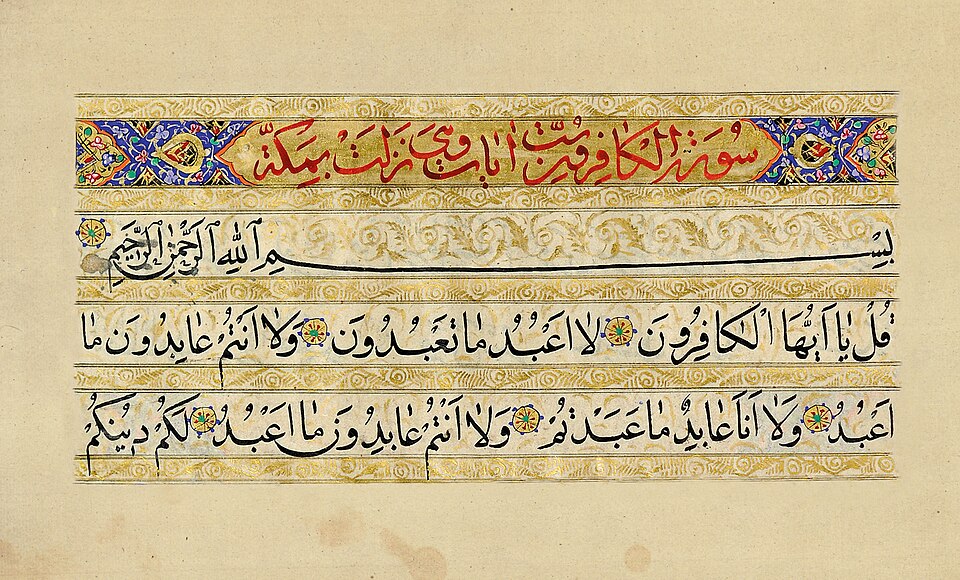 سُورَةُ الْكَافِرُونَ سِتُّ اٰيَاتٍ وَهِيَ نَزَلَتْ بِمَكَّةَ
بِسْمِ اللّٰهِ الرَّحْمٰنِ الرَّحِيمِ
قُلْ يَا اَيُّهَا الْكَافِرُونَ لَا اَعْبُدُ مَا تَعْبُدُونَ وَلَا اَنْتُمْ عَابِدُونَ مَا
اَعْبُدُ وَلَا اَنَا عَابِدٌ مَا عَبَدْتُمْ وَلَا اَنْتُمْ عَابِدُونَ مَا اَعْبُدُ لَكُمْ دِينُكُمْ